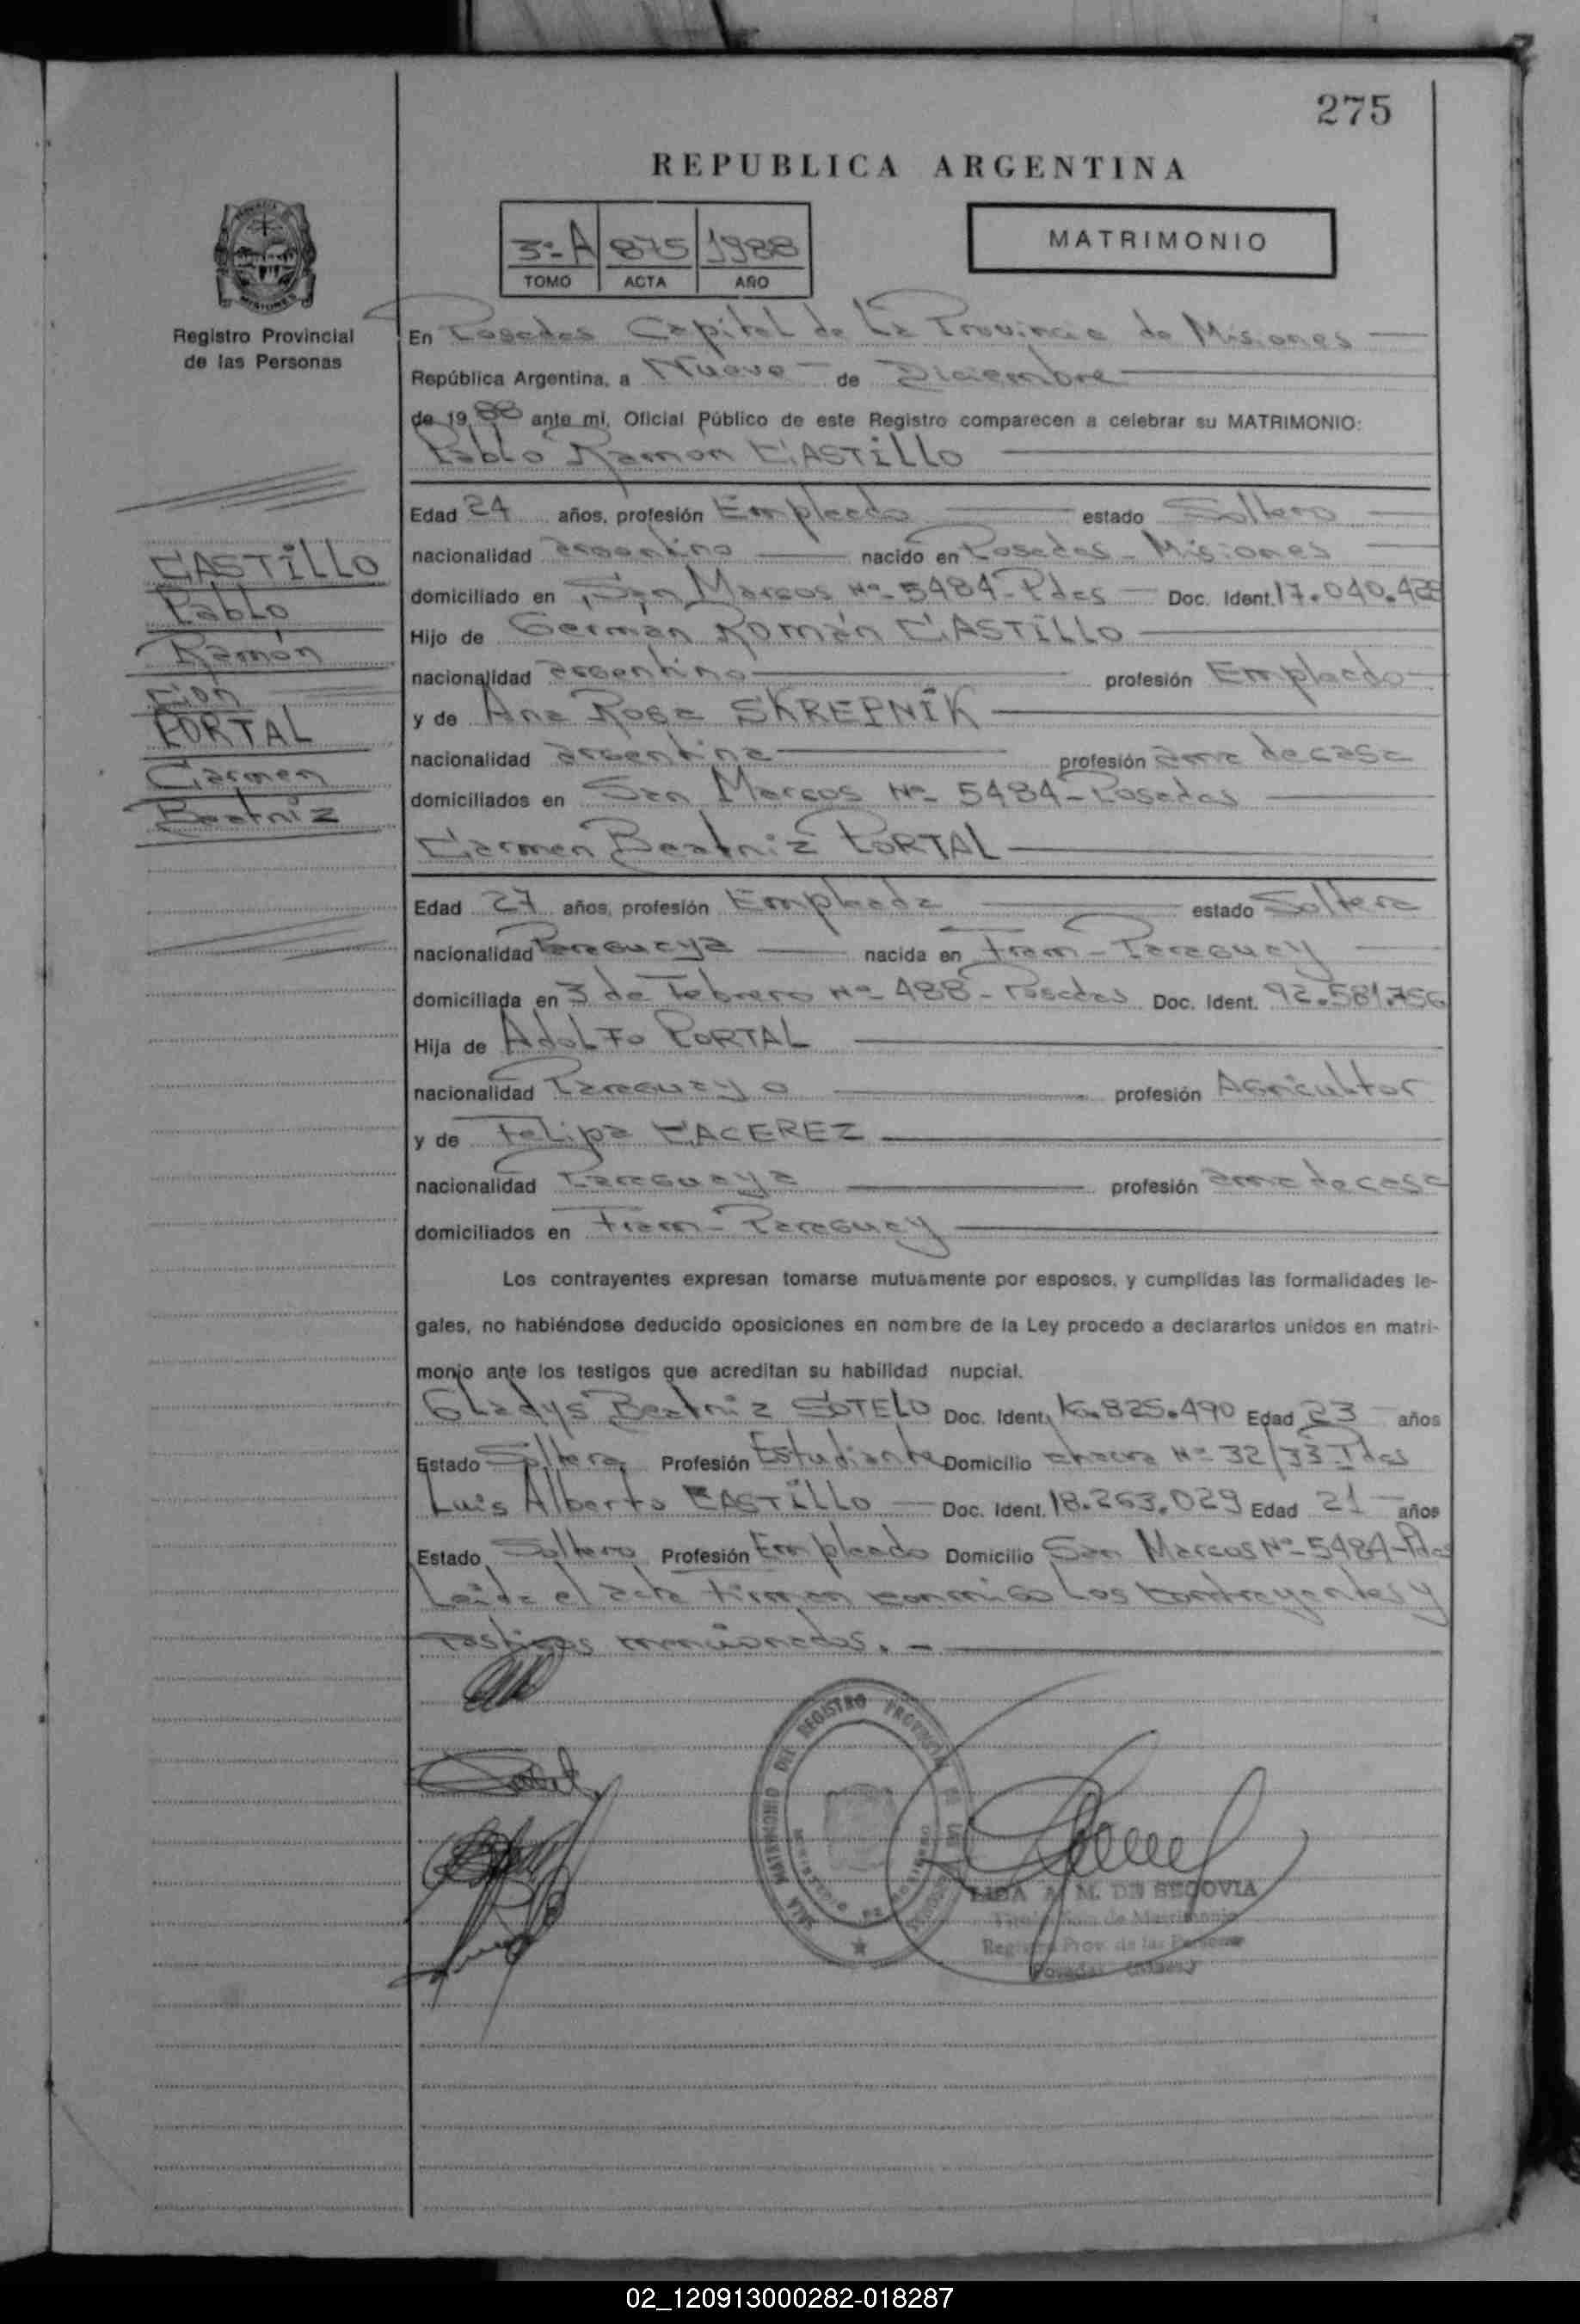 275
REPUBLICA ARGENTINA
3º A 875 1988
TOMO ACTA AÑO
MATRIMONIO
Registro Provincial
de las Personas
CASTILLO
Pablo
Ramón
con
PORTAL
Carmen
Beatriz
En Posadas Capital de La Provincia de Misiones
República Argentina, a Nueve de Diciembre
de 1988 ante mi, Oficial Público de este Registro comparecen a celebrar su MATRIMONIO:
Pablo Ramon CASTILLO
Edad 24 años, profesión Empleado estado Soltero
nacionalidad argentino nacido en Posadas - Misiones
domiciliado en San Marcos Nº 5484 - Pdas Doc. Ident. 17.040.428
Hijo de German Román CASTILLO
nacionalidad argentino profesión Empleado
y de Ana Rosa SKREPNIK
nacionalidad argentina profesión ama de casa
domiciliados en San Marcos Nº 5484 - Posadas
Carmen Beatriz PORTAL
Edad 27 años, profesión Empleada estado Soltera
nacionalidad Paraguaya nacida en Fram - Paraguay
domiciliada en 3 de Febrero Nº 488 - Posadas Doc. Ident. 92.581.756
Hija de Adolfo PORTAL
nacionalidad Paraguayo profesión Agricultor
y de Felipa CACEREZ
nacionalidad Paraguaya profesión ama de casa
domiciliados en Fram - Paraguay
Los contrayentes expresan tomarse mutuamente por esposos, y cumplidas las formalidades le-
gales, no habiéndose deducido oposiciones en nombre de la Ley procedo a declararlos unidos en matri-
monio ante los testigos que acreditan su habilidad nupcial.
Gladys Beatriz SOTELO Doc. Ident. 825.490 Edad 23 años
Estado Soltera Profesión Estudiante Domicilio chacra Nº 32/33 Pdas
Luis Alberto CASTILLO Doc. Ident. 18.263.029 Edad 21 años
Estado Soltero Profesión Empleado Domicilio San Marcos Nº 5484 - Pdas
Leida el acta firman conmigo Los contrayentes y
testigos mencionados. -
SALA MATRIMONIO DEL REGISTRO PROVINCIAL
LIDA A. M. DE SEGOVIA
Registro Prov. de las Personas
Posadas (Mnes.)
02_120913000282-018287